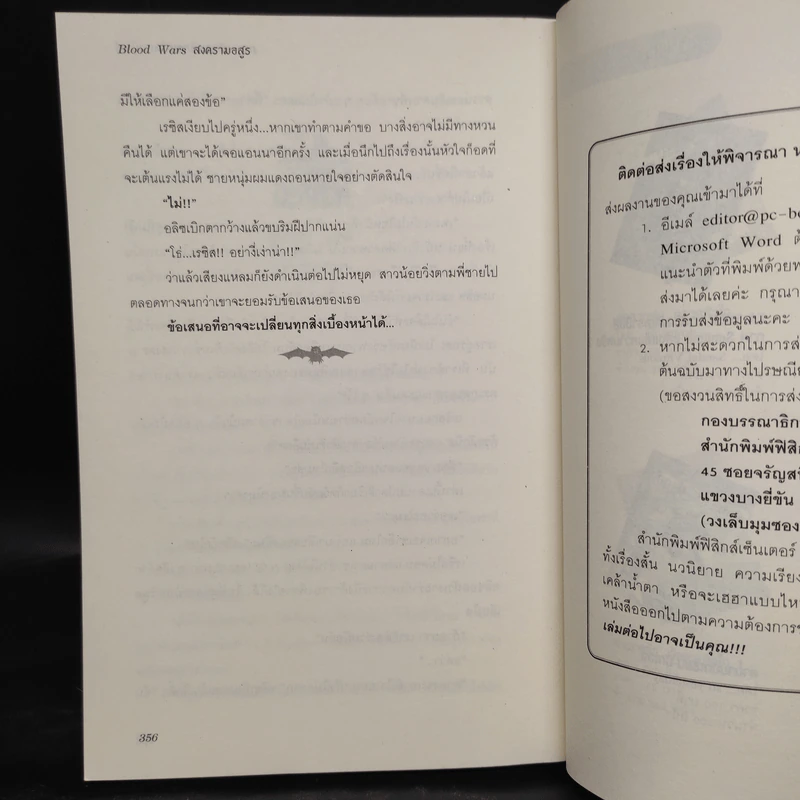 Blood Wars สงครามอสูร
มีให้เลือกแค่สองข้อ"
เรซิสเงียบไปครู่หนึ่ง...หากเขาทำตามคำขอ บางสิ่งอาจไม่มีทางหวน
คืนได้ แต่เขาจะได้เจอแอนนาอีกครั้ง และเมื่อนึกไปถึงเรื่องนั้นหัวใจก็อดที่
จะเต้นแรงไม่ได้ ชายหนุ่มผมแดงถอนหายใจอย่างตัดสินใจ
"ไม่!!"
อลิซเบิกตากว้างแล้วขบริมฝีปากแน่น
"โธ่...เรซิส!! อย่างี่เง่าน่า!!"
ว่าแล้วเสียงแหลมก็ยังดำเนินต่อไปไม่หยุด สาวน้อยวิ่งตามพี่ชายไป
ตลอดทางจนกว่าเขาจะยอมรับข้อเสนอของเธอ
ข้อเสนอที่อาจจะเปลี่ยนทุกสิ่งเบื้องหน้าได้...
356
ติดต่อส่งเรื่องให้พิจารณา
ส่งผลงานของคุณเข้ามาได้ที่
1. อีเมล์ editor@pc-bo
Microsoft Word
แนะนำตัวที่พิมพ์ด้วย
ส่งมาได้เลยค่ะ กรุณา
การรับส่งข้อมูลนะคะ
2. หากไม่สะดวกในการส่ง
ต้นฉบับมาทางไปรษณีย์
(ขอสงวนสิทธิ์ในการส่ง
กองบรรณาธิก
สำนักพิมพ์ฟิสิก
45 ซอยจรัญสนิ
แขวงบางยี่ขัน
(วงเล็บมุมซอง
สำนักพิมพ์ฟิสิกส์เซ็นเตอร์
ทั้งเรื่องสั้น นวนิยาย ความเรียง
เคล้าน้ำตา หรือจะเฮฮาแบบไหน
หนังสือออกไปตามความต้องการข
เล่มต่อไปอาจเป็นคุณ!!!